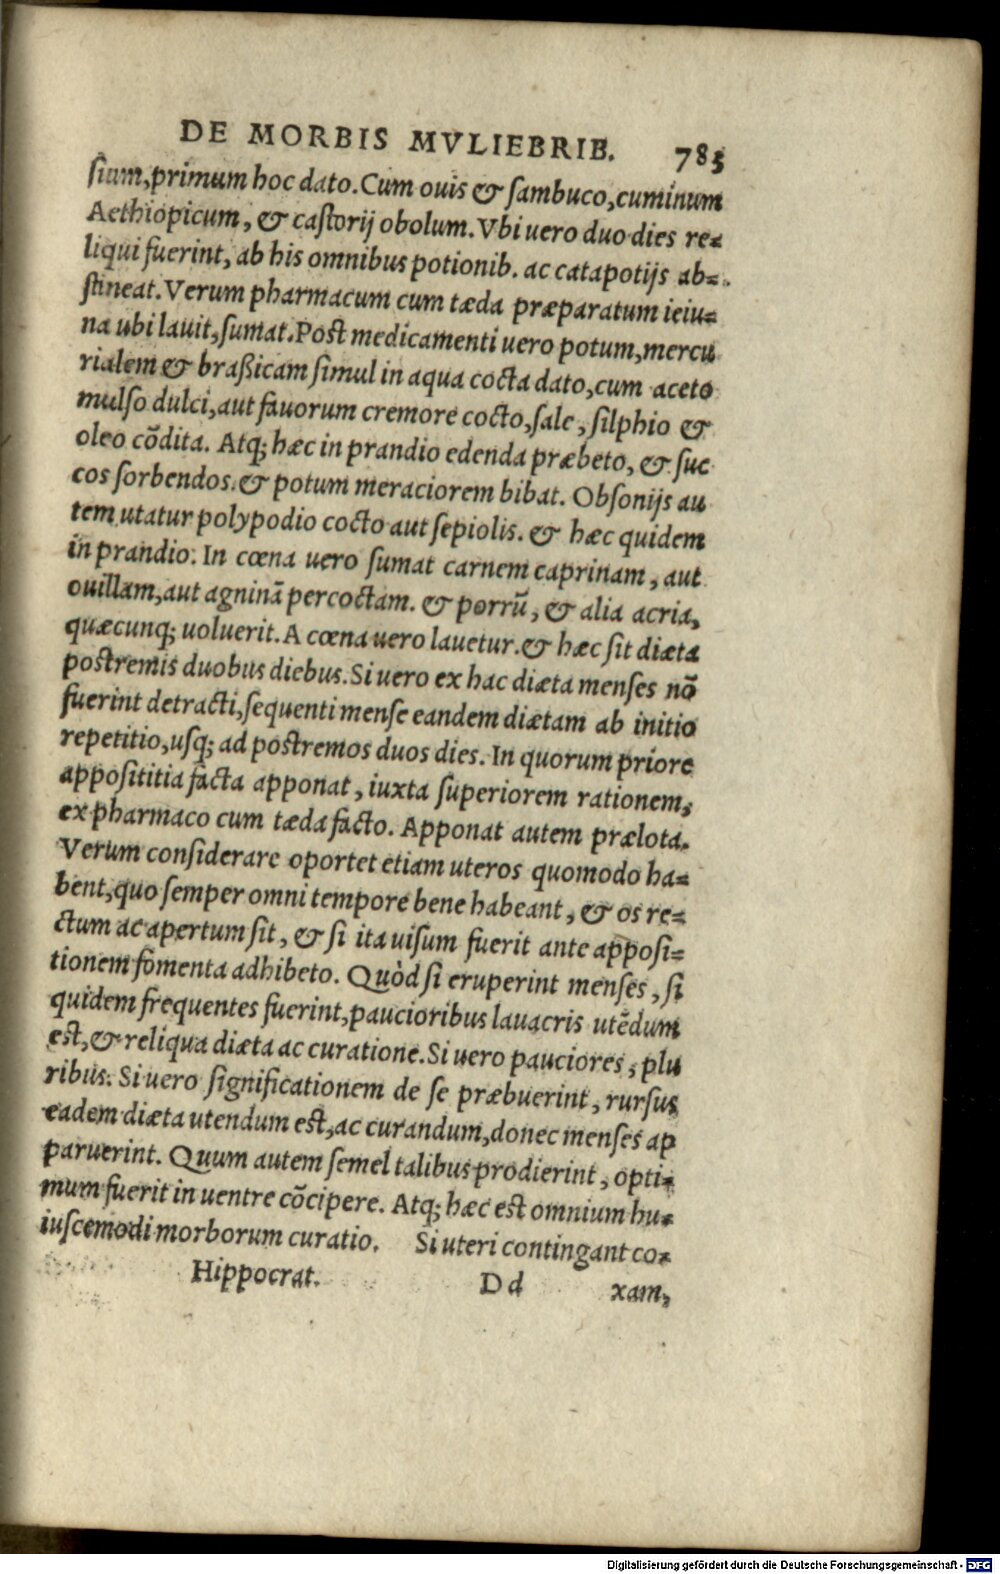 DE MORBIS MVLIEBRIB. 785
sium,primum hoc dato. Cum ouis & sambuco,cuminum
Aethiopicum, & castorij obolum. Vbi uero duo dies re=
liqui fuerint, ab his omnibus potionib. ac catapotijs ab=
stineat. Verum pharmacum cum tæda præparatum ieiu=
na ubi lauit,sumat. Post medicamenti uero potum,mercu
rialem & braßicam simul in aqua cocta dato,cum aceto
mulso dulci,aut fauorum cremore cocto,sale, silphio &
oleo cōdita. Atq; hæc in prandio edenda præbeto, & suc
cos sorbendos. & potum meraciorem bibat. Obsonijs au
tem utatur polypodio cocto aut sepiolis. & hæc quidem
in prandio. In cœna uero sumat carnem caprinam, aut
ouillam,aut agninā percoctam. & porrū, & alia acria,
quæcunq; uoluerit. A cœna uero lauetur. & hæc sit diæta
postremis duobus diebus. Si uero ex hac diæta menses nō
fuerint detracti,sequenti mense eandem diætam ab initio
repetitio,usq; ad postremos duos dies. In quorum priore
apposititia facta apponat, iuxta superiorem rationem,
ex pharmaco cum tæda facto. Apponat autem prælota.
Verum considerare oportet etiam uteros quomodo ha=
bent,quo semper omni tempore bene habeant, & os re=
ctum ac apertum sit, & si ita uisum fuerit ante apposi=
tionem fomenta adhibeto. Quòd si eruperint menses, si
quidem frequentes fuerint,paucioribus lauacris utēdum
est,& reliqua diæta ac curatione. Si uero pauciores, plu
ribus. Si uero significationem de se præbuerint, rursus
eadem diæta utendum est,ac curandum,donec menses ap
paruerint. Quum autem semel talibus prodierint, opti=
mum fuerit in uentre cōcipere. Atq; hæc est omnium hu=
iuscemodi morborum curatio. Si uteri contingant co=
Hippocrat. D d xam,
Digitalisierung gefördert durch die Deutsche Forschungsgemeinschaft - DFG